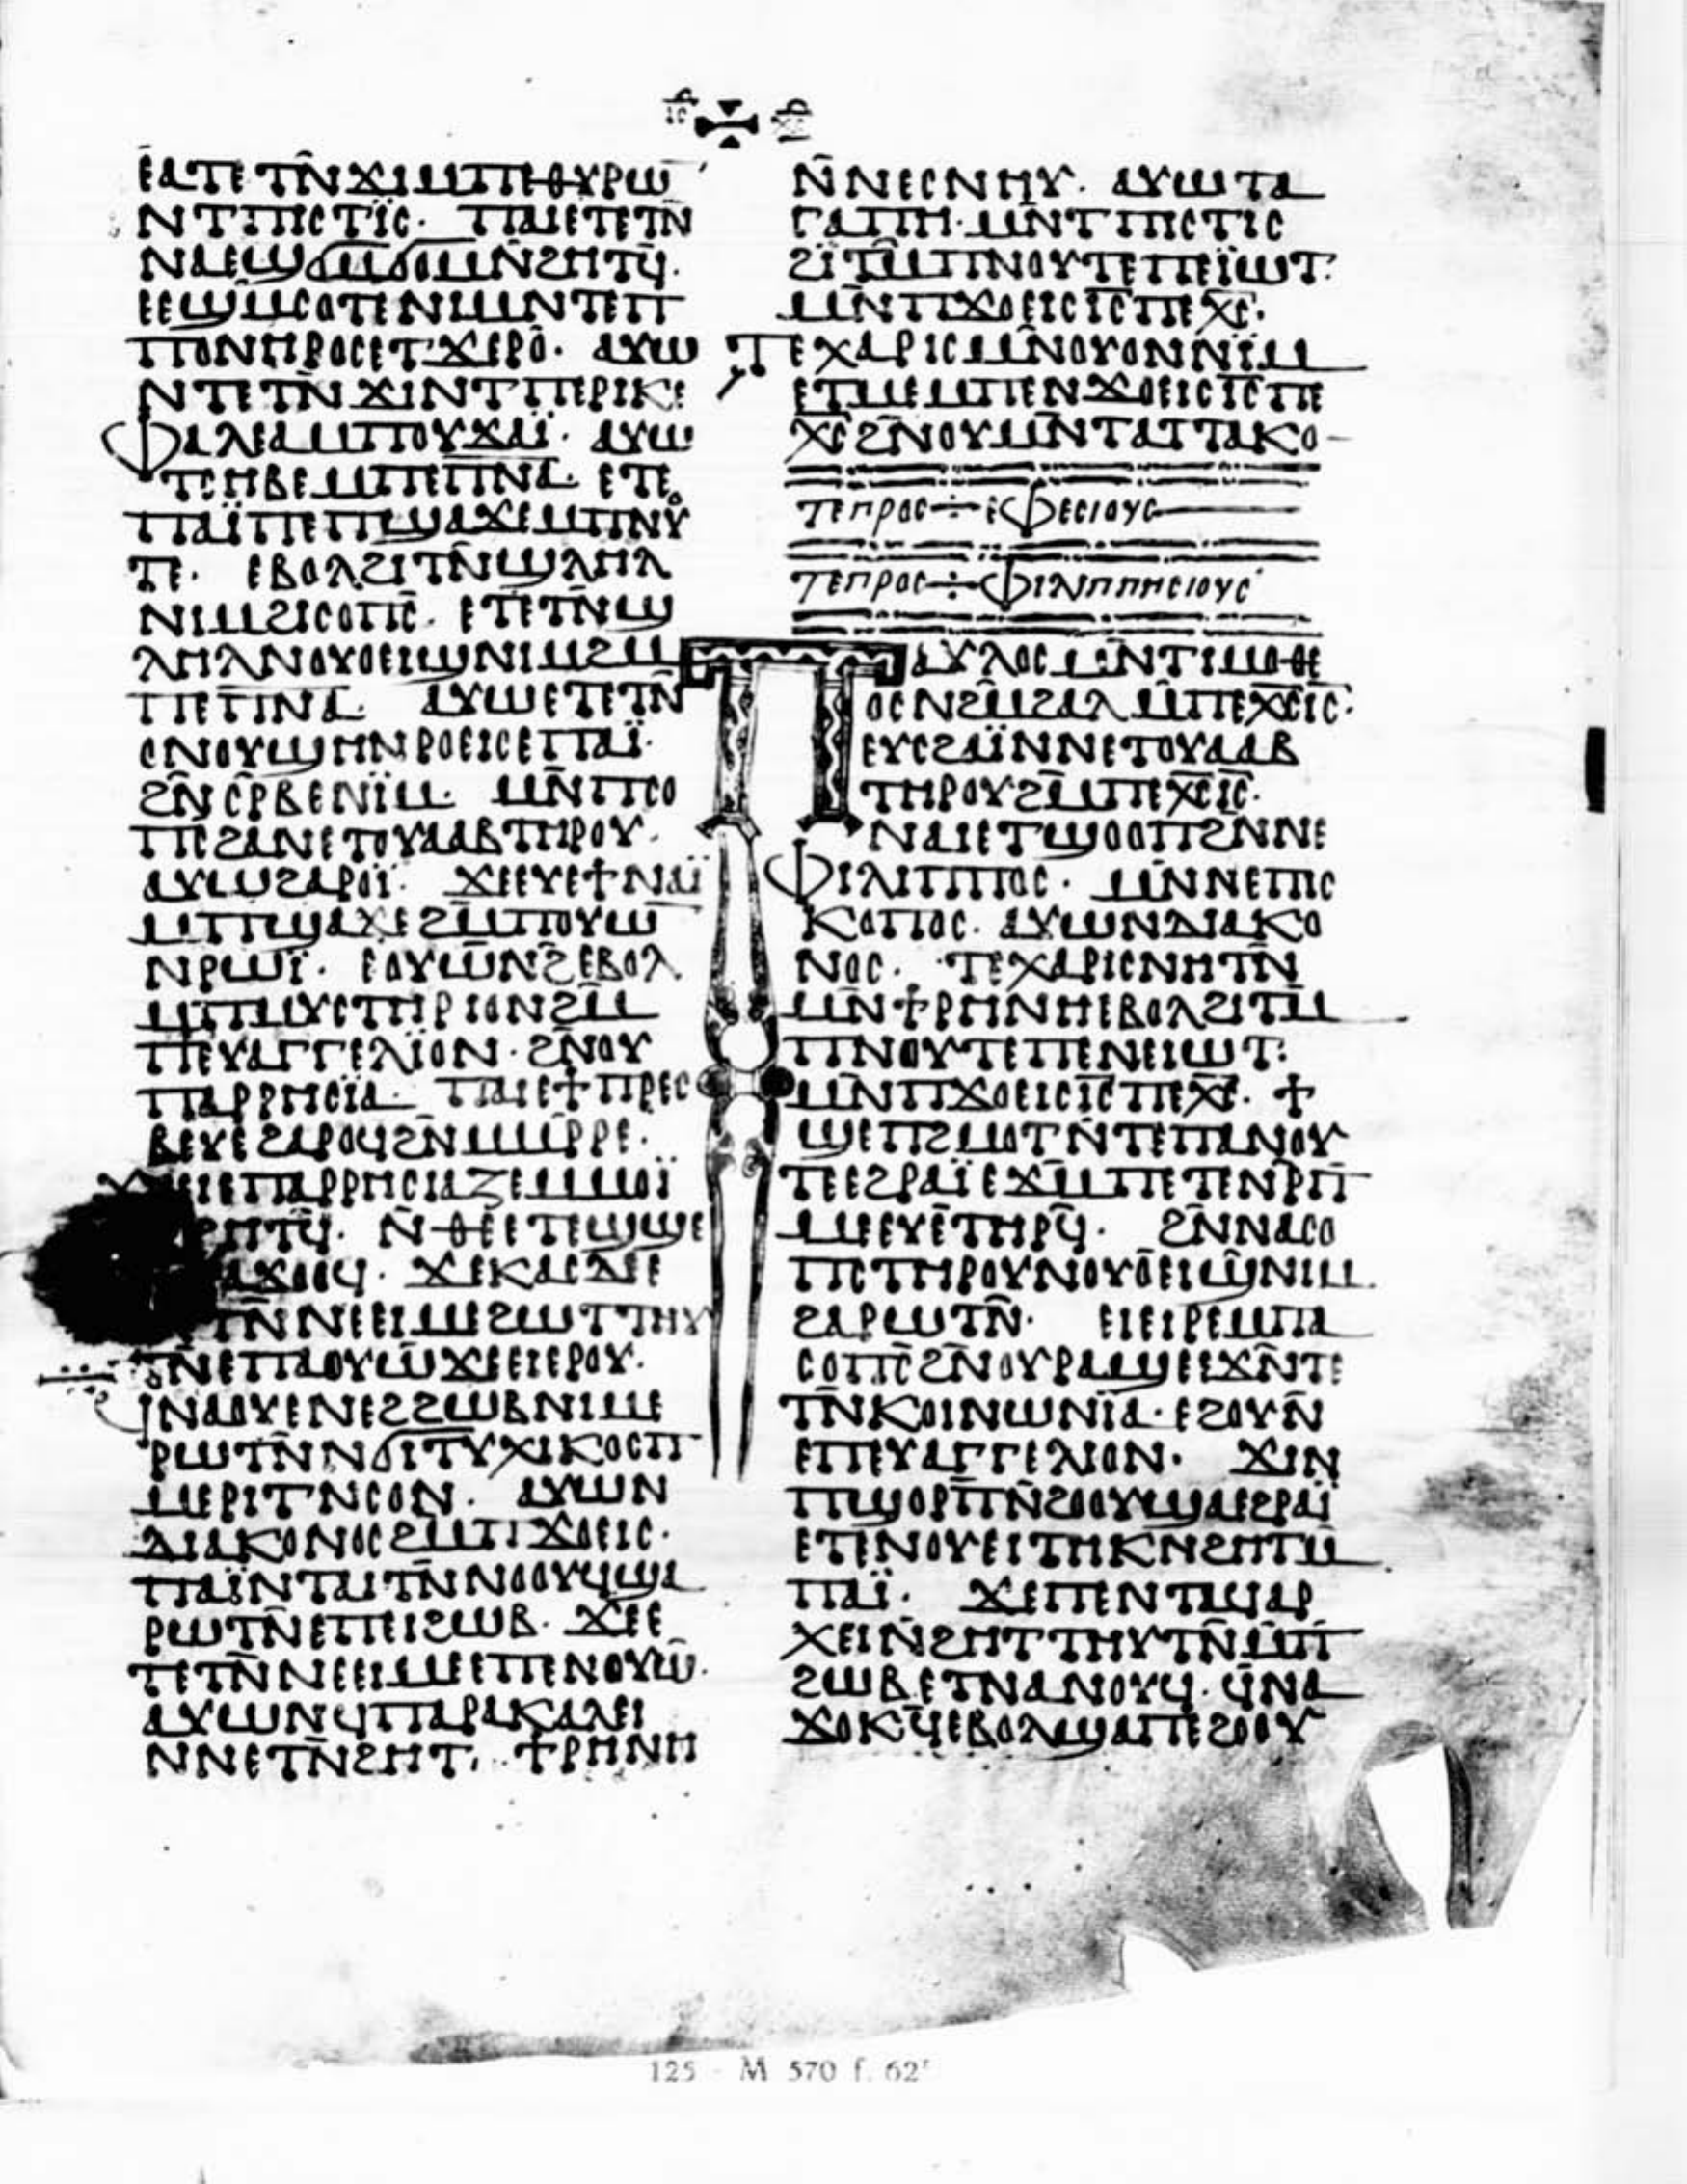 ⲓ̅ⲥ̅ ⲭ̅ⲥ̅
ⲉⲁⲧⲉⲧⲛ̄ϫⲓⲙⲡⲉⲑⲩⲣⲱ
ⲛⲧⲡⲓⲥⲧⲓ̈ⲥ· ⲡⲁⲓⲉⲧⲉⲧⲛ̄
ⲛⲁⲉϣϭⲙϭⲟⲙⲛ̄ϩⲏⲧϥ̄·
ⲉⲉϣⲙ̄ⲥⲟⲧⲉⲛⲓⲙⲛⲧⲉⲡ
ⲡⲟⲛⲏⲣⲟⲥⲉⲧϫⲉⲣⲟ̄· ⲁⲩⲱ
ⲛⲧⲉⲧⲛ̄ϫⲓⲛⲧⲡⲉⲣⲓⲕⲉ
ⲫⲁⲗⲉⲁⲙⲡⲟⲩϫⲁⲓ̈· ⲁⲩⲱ
ⲧⲥⲏⲃⲉⲙⲡⲉⲡ̅ⲛ̅ⲁ̅· ⲉⲧⲉ
ⲡⲁⲓ̈ⲡⲉⲡϣⲁϫⲉⲙⲡⲛⲟⲩ
ⲧⲉ· ⲉⲃⲟⲗϩⲓⲧⲛ̄ϣⲗⲏⲗ
ⲛⲓⲙϩⲓⲥⲟⲡⲥ̄· ⲉⲧⲉⲧⲛ̄ϣ
ⲗⲏⲗⲛⲟⲩⲟⲉⲓϣⲛⲓⲙϩⲙ
ⲡⲉⲡ̅ⲛ̅ⲁ̅· ⲁⲩⲱⲉⲧⲉⲧⲛ̄
ⲟⲛⲟⲩϣⲏⲛⲣⲟⲉⲓⲥⲉⲡⲁⲓ̈·
ϩⲛ̄ⲥⲣ̄ⲃⲉⲛⲓ̈ⲙ· ⲙⲛ̄ⲡⲥⲟ
ⲡⲥϩⲁⲛⲉⲧⲟⲩⲁⲁⲃⲧⲏⲣⲟⲩ·
ⲁⲩⲱϩⲁⲣⲟⲓ̈· ϫⲉⲉⲩⲉϯⲛⲁⲓ̈
ⲙⲡϣⲁϫⲉϩⲙ̄ⲡⲟⲩⲱ
ⲛⲣⲱⲓ̈· ⲉⲟⲩⲱⲛϩ̄ⲉⲃⲟⲗ
ⲙⲡⲙⲩⲥⲧⲏⲣⲓⲟⲛϩⲙ̄
ⲡⲉⲩⲁⲅⲅⲉⲗⲓ̈ⲟⲛ· ϩⲛ̄ⲟⲩ
ⲡⲁⲣⲣⲏⲥⲓ̈ⲁ· ⲡⲁⲓⲉϯⲡⲣⲉⲥ
ⲃⲉⲩⲉϩⲁⲣⲟϥϩⲛ̄ⲙⲙⲣ̄ⲣⲉ·
ⲉⲓⲉⲡⲁⲣⲣⲏⲥⲓⲁⲍⲉⲙⲙⲟⲓ̈
ϩⲣⲏⲧϥ̄· ⲛ̄ⲑⲉⲉⲧⲉϣϣⲉ
ⲁϫⲟⲟϥ· ϫⲉⲕⲁⲥⲇⲉⲉ
ⲧⲛ̄ⲛⲉⲉⲓⲙⲉϩⲱⲧⲧⲏⲩ
ⲧⲛ̄ⲉⲡⲁⲟⲩⲱϫⲉⲉⲓⲉⲣⲟⲩ·
ϥⲛⲁⲟⲩⲉⲛⲉϩϩⲱⲃⲛⲓⲙⲉ
ⲣⲱⲧⲛ̄ⲛϭⲓⲧⲩⲭⲓⲕⲟⲥⲡ
ⲙⲉⲣⲓⲧⲛⲥⲟⲛ· ⲁⲩⲱⲛ
ⲇⲓⲁⲕⲟⲛⲟⲥϩⲙⲡϫⲟⲉⲓⲥ·
ⲡⲁⲓ̈ⲛⲧⲁⲓⲧⲛ̄ⲛⲟⲟⲩϥϣⲁ
ⲣⲱⲧⲛ̄ⲉⲡⲉⲓϩⲱⲃ· ϫⲉⲉ
ⲧⲉⲧⲛ̄ⲛⲉⲉⲓⲙⲉⲉⲡⲉⲛⲟⲩⲱ̄·
ⲁⲩⲱⲛϥⲡⲁⲣⲁⲕⲁⲗⲉⲓ
ⲛⲛⲉⲧⲛ̄ϩⲏⲧ· ϯⲣⲏⲛⲏ
ⲛ̄ⲛⲉⲥⲛⲏⲩ· ⲁⲩⲱⲧⲁ
ⲅⲁⲡⲏ· ⲙⲛ̄ⲧⲡⲓⲥⲧⲓⲥ
ϩⲓ̈ⲧⲙ̄ⲡⲛⲟⲩⲧⲉⲡⲉⲓ̈ⲱⲧ·
ⲙⲛ̄ⲡϫⲟⲉⲓⲥⲓ̅ⲥ̅ⲡⲉⲭ̅ⲥ̅·
ⲧⲉⲭⲁⲣⲓⲥⲙⲛ̄ⲟⲩⲟⲛⲛⲓ̈ⲙ
ⲉⲧⲙⲉⲙⲡⲉⲛϫⲟⲉⲓⲥⲓ̅ⲥ̅ⲡⲉ
ⲭ̅ⲥ̅ϩⲛ̄ⲟⲩⲙⲛ̄ⲧⲁⲧⲧⲁⲕⲟ—
ⲧⲉⲡⲣⲟⲥ÷ⲉⲫⲉⲥⲓⲟⲩⲥ
ⲧⲉⲡⲣⲟⲥ÷ⲫⲓⲗⲓⲡⲡⲏⲥⲓⲟⲩⲥ
ⲡⲁⲩⲗⲟⲥⲙⲛ̄ⲧⲓⲙⲟⲑⲉ
ⲟⲥⲛϩⲙ̄ϩⲁⲗⲙ̄ⲡⲉⲭ̅ⲥ̅ⲓ̅ⲥ̅·
ⲉⲩⲥϩⲁⲓ̈ⲛⲛⲉⲧⲟⲩⲁⲁⲃ
ⲧⲏⲣⲟⲩϩⲙ̄ⲡⲉⲭ̅ⲥ̅ⲓ̅ⲥ̅·
ⲛⲁⲓⲉⲧϣⲟⲟⲡϩⲛⲛⲉ
ⲫⲓⲗⲓⲡⲡⲟⲥ· ⲙⲛ̄ⲛⲉⲡⲓⲥ
ⲕⲟⲡⲟⲥ· ⲁⲩⲱⲛⲇⲓⲁⲕⲟ
ⲛⲟⲥ· ⲧⲉⲭⲁⲣⲓⲥⲛⲏⲧⲛ̄
ⲙⲛ̄ϯⲣⲏⲛⲏⲉⲃⲟⲗϩⲓⲧⲙ̄
ⲡⲛⲟⲩⲧⲉⲡⲉⲛⲉⲓⲱⲧ:
ⲙⲛ̄ⲡϫⲟⲉⲓⲥⲓ̅ⲥ̅ⲡⲉⲭ̅ⲥ̅· ϯ
ϣⲉⲡϩⲙⲟⲧⲛ̄ⲧⲉⲡⲁⲛⲟⲩ
ⲧⲉⲉϩⲣⲁⲓ̈ⲉϫⲙ̄ⲡⲉⲧⲉⲛⲣ̄ⲡ
ⲙⲉⲉⲩⲉ̄ⲧⲏⲣϥ̄· ϩⲛ̄ⲛⲁⲥⲟ
ⲡⲥⲧⲏⲣⲟⲩⲛⲟⲩⲟ̄ⲉⲓϣ̄ⲛⲓⲙ·
ϩⲁⲣⲱⲧⲛ̄· ⲉⲓⲉⲓⲣⲉⲙⲡⲁ
ⲥⲟⲡⲥ̄ϩⲛ̄ⲟⲩⲣⲁϣⲉⲉϫⲛ̄ⲧⲉ
ⲧⲛ̄ⲕⲟⲓⲛⲱⲛⲓ̈ⲁ· ⲉϩⲟⲩⲛ̄
ⲉⲡⲉⲩⲁⲅⲅⲉⲗⲓⲟⲛ· ϫⲓⲛ
ⲡϣⲟⲣⲡ̄ⲛ̄ϩⲟⲟⲩϣⲁⲉϩⲣⲁⲓ̈
ⲉⲧⲉⲛⲟⲩⲉⲓⲧⲏⲕⲛϩⲏⲧⲙ̄
ⲡⲁⲓ̈· ϫⲉⲡⲉⲛⲧⲁϥⲁⲣ
ⲭⲉⲓⲛ̄ϩⲏⲧⲧⲏⲩⲧⲛ̄ⲙ̄ⲡ
ϩⲱⲃⲉⲧⲛⲁⲛⲟⲩϥ· ϥ̄ⲛⲁ
ϫⲟⲕϥ̄ⲉⲃⲟⲗϣⲁⲡⲉϩⲟⲟⲩ
125 - M 570 f. 62ʳ